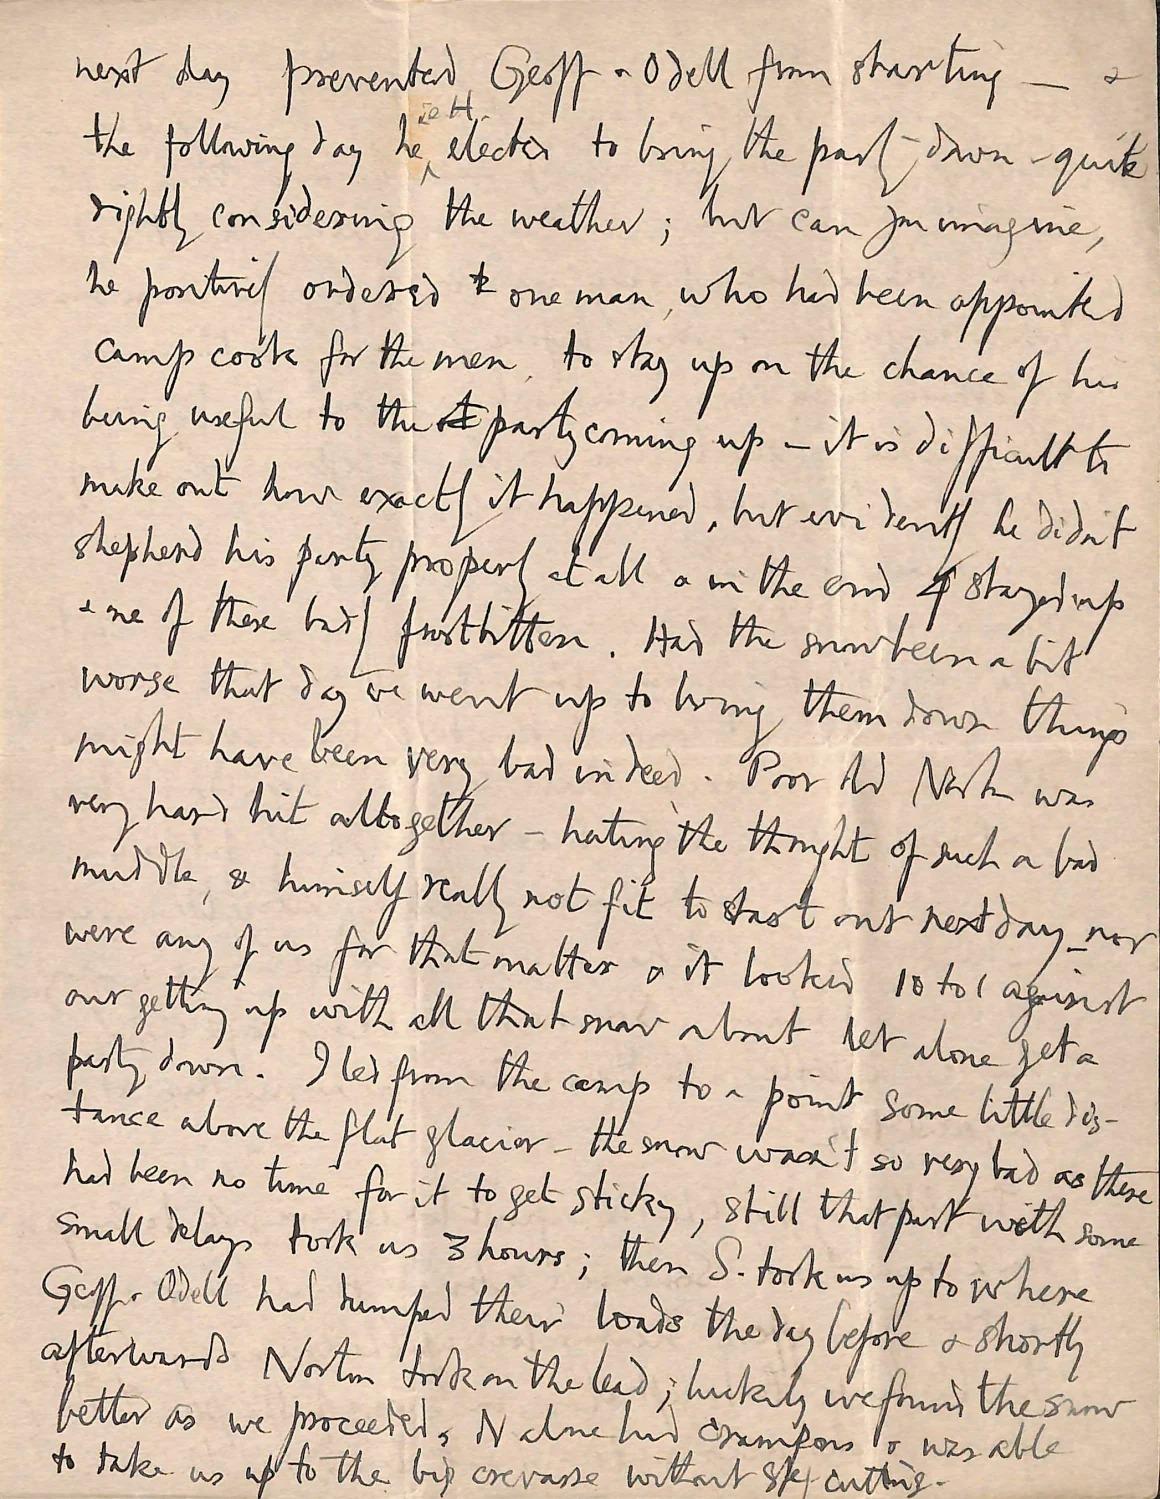 next day prevented Geoff & Odell from starting — &
the following day he elected to bring the party down - quite
rightly considering the weather; but can you imagine,
he positively ordered one man, who had been appointed
camp cook for the men, to stay up on the chance of his
being useful to the party coming up – it is difficult to
make out how exactly it happened, but evidently he didn't
shepherd his party properly at all & in the end 4 stayed up
& one of these badly frostbitten. Had the snow been a bit
worse that day we went up to bring them down things
might have been very bad indeed. Poor old Norton was
very hard hit altogether – hating the thought of such a bad
muddle, & himself really not fit to start out next day – nor
were any of us for that matter & it looked 10 to 1 against
our getting up with all that snow about let alone get a
party down. I led from the camp to a point some little dis-
tance above the flat glacier – the snow wasn't so very bad as there
had been no time for it to get sticky, still that part with some
small delays took us 3 hours; then S. took us up to where
Geoff & Odell had dumped their loads the day before & shortly
afterwards Norton took on the lead; luckily we found the snow
better as we proceeded, N alone had crampons & was able
to take us up to the big crevasse without step cutting.